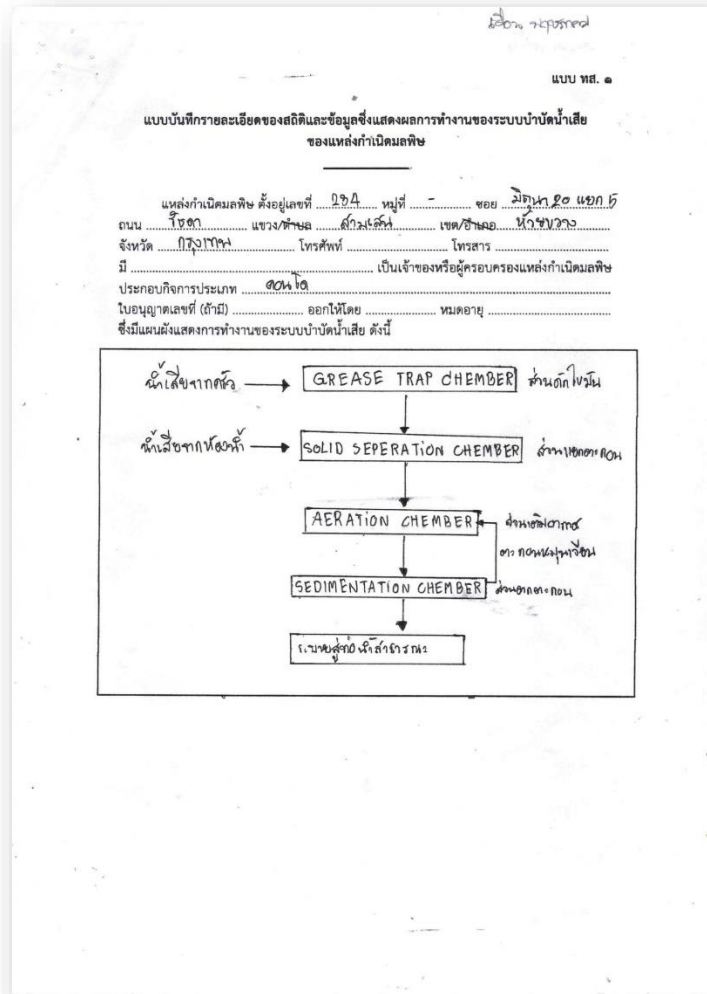 เดือน พฤษภาคม
แบบ ทส. ๑
แบบบันทึกรายละเอียดของสถิติและข้อมูลซึ่งแสดงผลการทำงานของระบบบำบัดน้ำเสีย
ของแหล่งกำเนิดมลพิษ
แหล่งกำเนิดมลพิษ ตั้งอยู่เลขที่ 284 หมู่ที่ - ซอย มิถุนา 20 แยก 5
ถนน รัชดา แขวง/ตำบล สามเสน เขต/อำเภอ ห้วยขวาง
จังหวัด กรุงเทพ โทรศัพท์ โทรสาร
มี เป็นเจ้าของหรือผู้ครอบครองแหล่งกำเนิดมลพิษ
ประกอบกิจการประเภท คอนโด
ใบอนุญาตเลขที่ (ถ้ามี) ออกให้โดย หมดอายุ
ซึ่งมีแผนผังแสดงการทำงานของระบบบำบัดน้ำเสีย ดังนี้
น้ำเสียจากครัว GREASE TRAP CHEMBER ส่วนดักไขมัน
น้ำเสียจากห้องน้ำ SOLID SEPERATION CHEMBER ส่วนแยกตะกอน
AERATION CHEMBER ส่วนเติมอากาศ
ตะกอนหมุนเวียน
SEDIMENTATION CHEMBER ส่วนตกตะกอน
ระบายสู่ท่อน้ำสาธารณะ